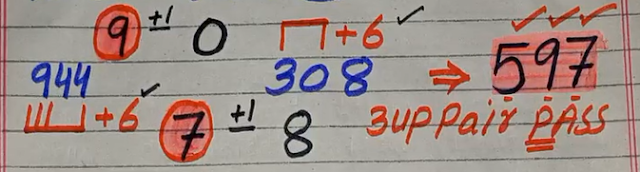 9 ±1 0 +6 ✓
944 308 ⇒ 597
+6 ✓ 7 ±1 8 3up Pair PASS